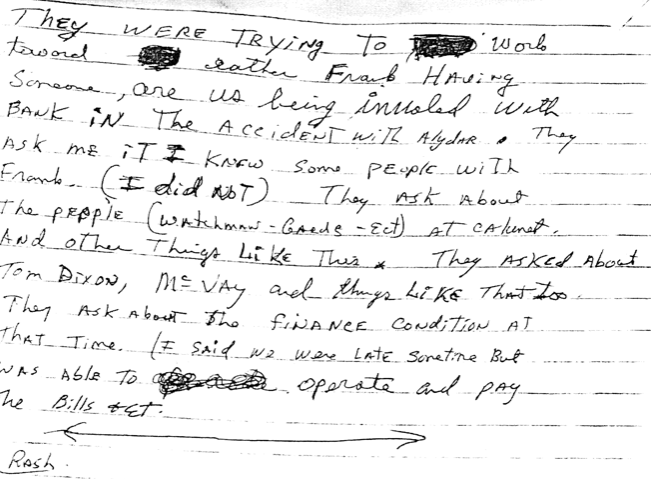 They WERE TRYING TO Work
toward rather Frank HAving
Someone, are us being involed with
BANK iN The ACCiDENT WiTh Alydar. They
ASK me iT I KNEW Some PEOPLE WiTh
Frank. (I did NOT) They ASK About
The PEOPlE (WATchman - Gaeds - Ect) AT CAlumet.
ANd other Things LiKE This. They ASKED About
Tom DixoN, McVAy and things LiKE That too.
They ASK AbouT The fiNANCE CoNdiTioN AT
ThAT Time. (I SAid we were LATE Sometime But
WAS AblE To operate and pay
The Bills + ET.
RASh.